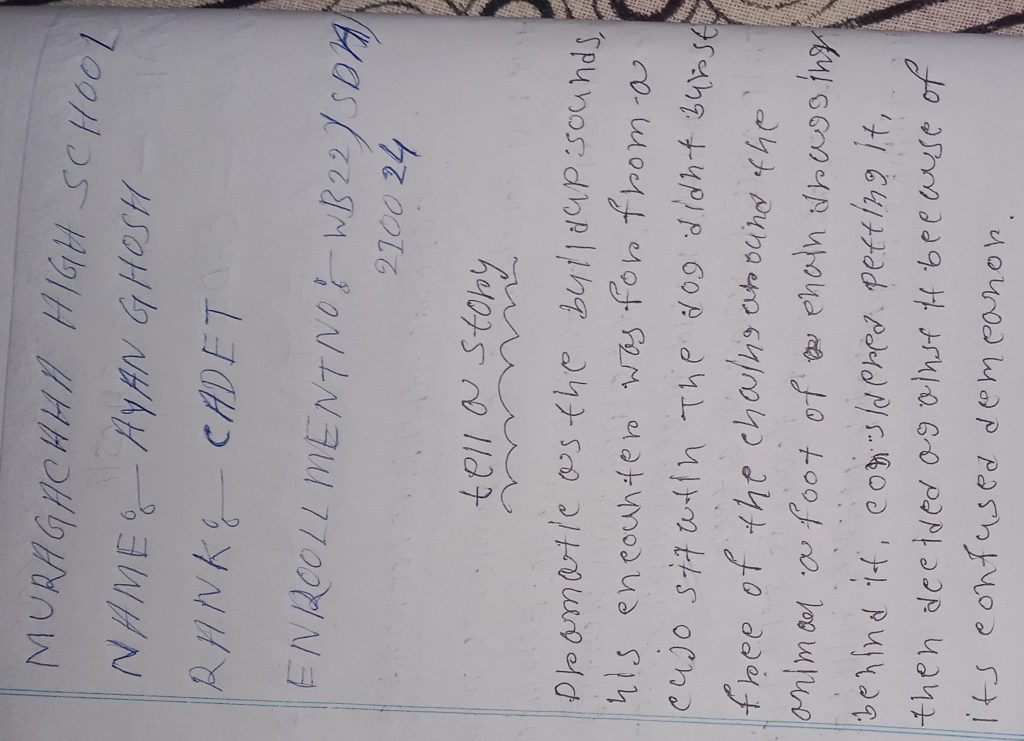 MURAGACHHA HIGH SCHOOL
NAME:- AYAN GHOSH
RANK:- CADET
ENROOLLMENTNO:- WB22JSDA
210024
tell a story
Dramatic as the byildup sounds,
his encounter was for from a
cujo situtin The dog didnt burst
free of the chaingaround the
animal a foot of chain dragging
behind it, considered petting it,
then decided against it because of
its confused demeanor.